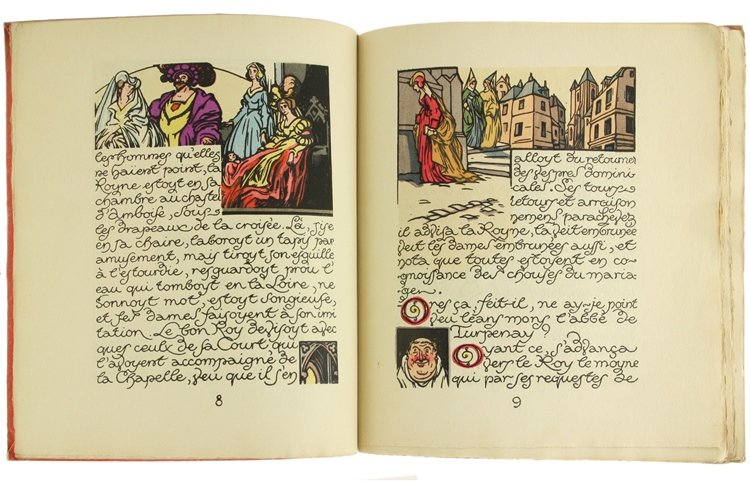 les hommes qu'elles
ne haïent point, la
Royne estoyt en sa
chambre au chastel
d'Amboise, sous
les drapeaux de la croisée. Là, sise
en sa chaire, laboroyt un tapis par
amusement, mais tiroyt son esguille
à l'estourdie, resguardoyt prou l'
eau qui tomboyt en la Loire, ne
sonnoyt mot, estoyt songieuse,
et ses dames faysoyent à son imi
tation. Le bon Roy devisoyt avec
ques ceulx de sa Court qui
l'avoyent accompaigné de
la Chapelle, veu que il s'en
8
alloyt du retourner
des vespres domini
cales. Ses tours
retours et arraison
nemens parachevez
il advisa la Royne, la veit embrunée
veit les dames embrunées aussi, et
nota que toutes estoyent en co-
gnoissance de chouses du maria-
ge.
Ores ça, feit-il, ne ay-je point
veu léans mons l'abbé de
Turpenay?
Oyant ce s'advança
vers le Roy le moyne
qui par ses requestes de
9